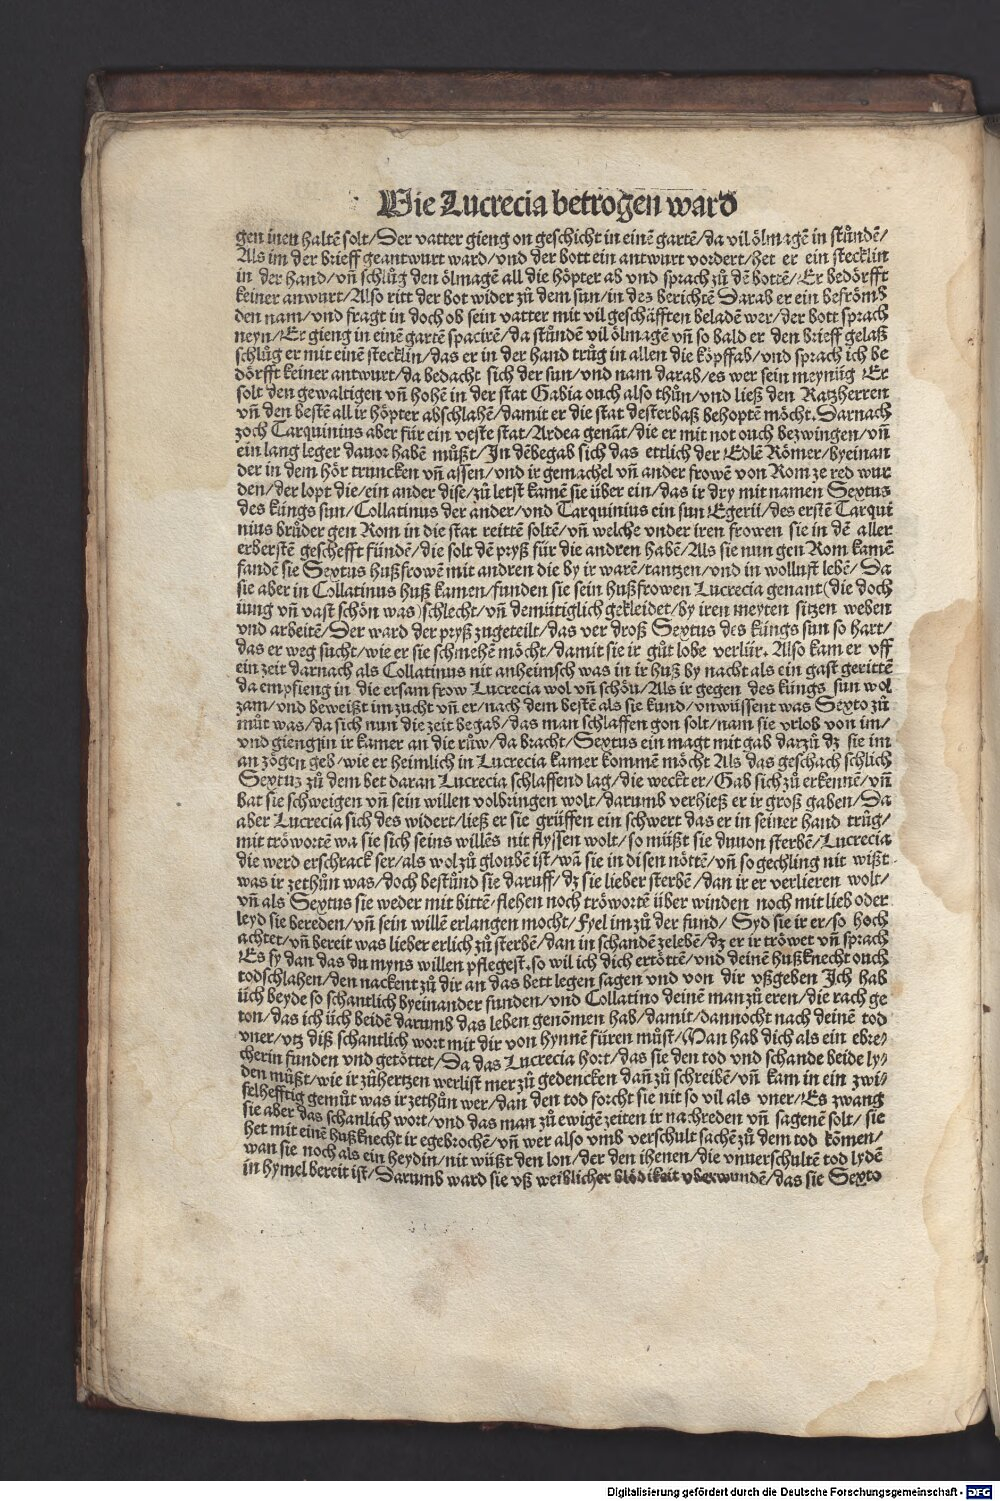 Wie Lucrecia betrogen ward
gen inen haltē solt/Der vatter gieng on geschicht in einē gartē/da vil ölmagē in stůndē/
Als im der brieff geantwurt ward/vnd der bott ein antwurt vordert/het er ein stecklin
in der hand/vn̄ schlůg den ölmagē all die höpter ab vnd sprach zů dē bottē/Er bedörfft
keiner anwurt/Also ritt der bot wider zů dem sun/in des berichtē Darab er ein befrömb
den nam/vnd fragt in doch ob sein vatter mit vil geschäfften beladē wer/der bott sprach
neyn/Er gieng in einē gartē spacirē/da stůndē vil ölmagē vn̄ so bald er den brieff gelaß
schlůg er mit einē stecklin/das er in der hand trůg in allen die köpffab/vnd sprach ich be
dörfft keiner antwurt/da bedacht sich der sun/vnd nam darab/es wer sein meynūg Er
solt den gewaltigen vn̄ hohē in der stat Gabia ouch also thůn/vnd ließ den Ratzherren
vn̄ den bestē all ir höpter abschlahē/damit er die stat desterbaß behoptē möcht. Darnach
zoch Tarquinius aber für ein veste stat/Ardea genāt/die er mit not ouch bezwingen/vn̄
ein lang leger dauor habē müßt/In dēbegab sich das ettlich der Edlē Römer/byeinan
der in dem hör truncken vn̄ assen/vnd ir gemachel vn̄ ander frowē von Rom ze red wur
den/der lopt die/ein ander dise/zů letst kamē sie über ein/das ir dry mit namen Sextus
des küngs sun/Collatinus der ander/vnd Tarquinius ein sun Egerii/des erstē Tarqui
nius brůder gen Rom in die stat reittē soltē/vn̄ welche vnder iren frowen sie in dē aller
erberstē geschefft fündē/die solt dē pryß für die andren habē/Als sie nun gen Rom kamē
fandē sie Sextus hußfrowē mit andren die by ir warē/tantzen/vnd in wollust lebē/Da
sie aber in Collatinus huß kamen/funden sie sein hußfrowen Lucrecia genant(die doch
iung vn̄ vast schön was/schlecht/vn̄ demütiglich gekleidet/by iren meyten sitzen weben
vnd arbeitē/Der ward der pryß zugeteilt/das ver droß Sextus des küngs sun so hart/
das er weg sucht/wie er sie schmehē möcht/damit sie ir gůt lobe verliir. Also kam er vff
ein zeit darnach als Collatinus nit anheimsch was in ir huß by nacht als ein gast gerittē
da empfieng in die ersam frow Lucrecia wol vn̄ schön/Als ir gegen des küngs sun wol
zam/vnd beweißt im zucht vn̄ er/nach dem bestē als sie kund/vnwüssent was Sexto zů
můt was/da sich nun die zeit begab/das man schlaffen gon solt/nam sie vrlob von im/
vnd gieng in ir kamer an die růw/da bracht/Sextus ein magt mit gab darzů dz sie im
an zögen geb/wie er heimlich in Lucrecia kamer kommē möcht Als das geschach schlich
Sextus zů dem bet daran Lucrecia schlaffend lag/die weckt er/Gab sich zů erkennē/vn̄
bat sie schweigen vn̄ sein willen volbringen wolt/darumb verhieß er ir groß gaben/Da
aber Lucrecia sich des widert/ließ er sie grüffen ein schwert das er in seiner hand trůg/
mit tröwortē wa sie sich seins willēs nit flyssen wolt/so müßt sie dauon sterbē/Lucrecia
die werd erschrack ser/als wol zů gloubē ist/wā sie in disen nöttē/vn̄ so gechling nit wißt
was ir zethůn was/doch bestůnd sie daruff/dz sie lieber sterbē/dan ir er verlieren wolt/
vn̄ als Sextus sie weder mit bittē/flehen noch tröwortē über winden noch mit lieb oder
leyd sie bereden/vn̄ sein willē erlangen mocht/Fyel im zů der fund/Syd sie ir er/so hoch
achtet/vn̄ bereit was lieber erlich zů sterbē/dan in schandē zelebē/dz er ir tröwet vn̄ sprach
Es sy dan das du myns willen pflegest.so wil ich dich ertöttē/vnd deinē hußknecht ouch
todschlahen/den nackent zů dir an das bett legen sagen vnd von dir vßgeben Ich hab
üch beyde so schantlich byeinander funden/vnd Collatino deinē man zů eren/die rach ge
ton/das ich üch beidē darumb das leben genōmen hab/damit/dannocht nach deinē tod
vner/vtz diß schantlich wort mit dir von hynnē füren můst/Man hab dich als ein ebre/
cherin funden vnd getöttet/Da das Lucrecia hort/das sie den tod vnd schande beide ly/
den müßt/wie ir zůhertzen werlist mer zů gedencken dan̄ zů schreibē/vn̄ kam in ein zwi/
felhefftig gemůt was ir zethůn wer/dan den tod forcht sie nit so vil als vner/Es zwang
sie aber das schanlich wort/vnd das man zů ewigē zeiten ir nachreden vn̄ sagenē solt/sie
het mit einē hußknecht ir egebrochē/vn̄ wer also vmb verschult sachē zů dem tod kōmen/
wan sie noch als ein heydin/nit wüßt den lon/der den ihenen/die vnuerschultē tod lydē
in hymel bereit ist/Darumb ward sie vß weiblicher blödikeit vberwundē/das sie Sexto
Digitalisierung gefördert durch die Deutsche Forschungsgemeinschaft - DFG